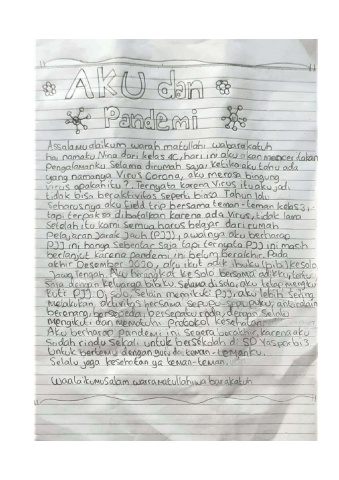 AKU dan
Pandemi
Assalamualaikum warah matullahi wabarakatuh
hai namaku Nina dari kelas 4C, hari ini aku akan menceritakan
Pengalamanku Selama dirumah saja. ketika aku tahu ada
yang namanya Virus Corona, aku merasa bingung
Virus apakah itu?. Ternyata karena Virus itu aku jadi
tidak bisa beraktivitas seperti biasa Tahun lalu
Seharusnya aku field trip bersama teman-teman kelas 3,
tapi terpaksa dibatalkan karena ada Virus, tidak lama
Setelah itu kami Semua harus belajar dari rumah
Pelajaran Jarak Jauh (PJJ), awalnya aku berharap
PJJ ini hanya Sebentar Saja tapi ternyata PJJ ini masih
berlanjut karena pandemi ini belum berakhir. Pada
akhir Desember 2020, aku ikut adik Ibuku ke Solo
Jawa Tengah. Aku berangkat ke Solo bersama adikku, tantu
Saja dengan keluarga bibiku. Selama di solo, aku tetap mengiku
ti PJJ. Di Solo, Selain mengikuti PJJ, aku lebih Sering
melakukan, aktivitas bersama Sepupu-Sepupuku, antaralain
berenang, bersepeda, bersepatu roda, dengan Selalu
mengikuti dan mematuhi Protokol kesehatan.
Aku berharap pandemi ini Segera berakhir, karena aku
Sudah rindu Sekali untuk bersekolah di SD Yasporbi 3
Untuk bertemu dengan guru dan teman-temanku.
Selalu jaga kesehatan ya teman-teman...
Waalaikumusalam warramatullahiwabarakatuh